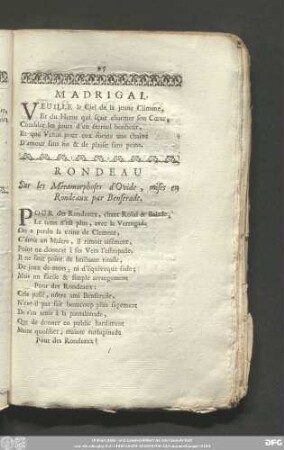 95
MADRIGAL.
VEUILLE le Ciel de la jeune Climene,
Et du Heros qui sçait charmer son Cœur,
Combler les jours d'un éternel bonheur,
Et que Venus pour eux d'une chaîne
D'amour sans fin & de plaisir sans peine.
RONDEAU
Sur les Métamorphoses d'Ovide, mises en
Rondeaux par Benserade.
POUR des Rondeaux, chant Roïal & Balade,
Le tems n'est plus, avec la Vertugade,
On a perdu la veine de Clement,
C'étoit un Maître, il rimoit aisément,
Point ne donnoit à ses Vers l'estrapade.
Il ne faut point de brillante tirade,
De jeux de mots, ni d'équivoque fade;
Mais un facile & simple arrangement
Pour des Rondeaux:
Cela posé, notre ami Benserade,
N'eut-il pas fait beaucoup plus sagement
De s'en tenir à la pantalonade,
Que de donner au public hardiment
Maint quolibet, mainte turlupinade
Pour des Rondeaux?
DFG